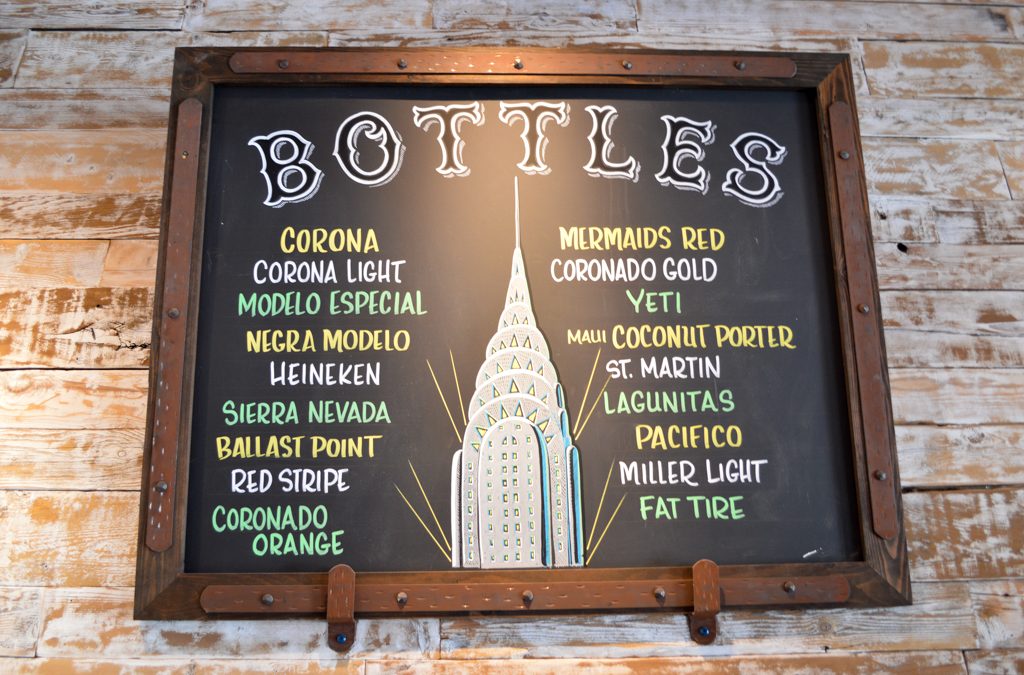 BOTTLES
CORONA
CORONA LIGHT
MODELO ESPECIAL
NEGRA MODELO
HEINEKEN
SIERRA NEVADA
BALLAST POINT
RED STRIPE
CORONADO
ORANGE
MERMAIDS RED
CORONADO GOLD
YETI
MAUI COCONUT PORTER
ST. MARTIN
LAGUNITAS
PACIFICO
MILLER LIGHT
FAT TIRE